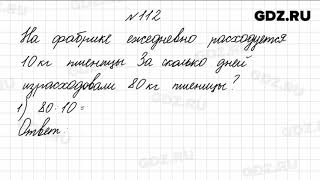 GDZ.RU
№112
На фабрике ежедневно расходуется
10 кг пшеницы За сколько дней
израсходовали 80 кг пшеницы?
1) 80·10=
Ответ:
GDZ.RU
GDZ.RU
GDZ.RU